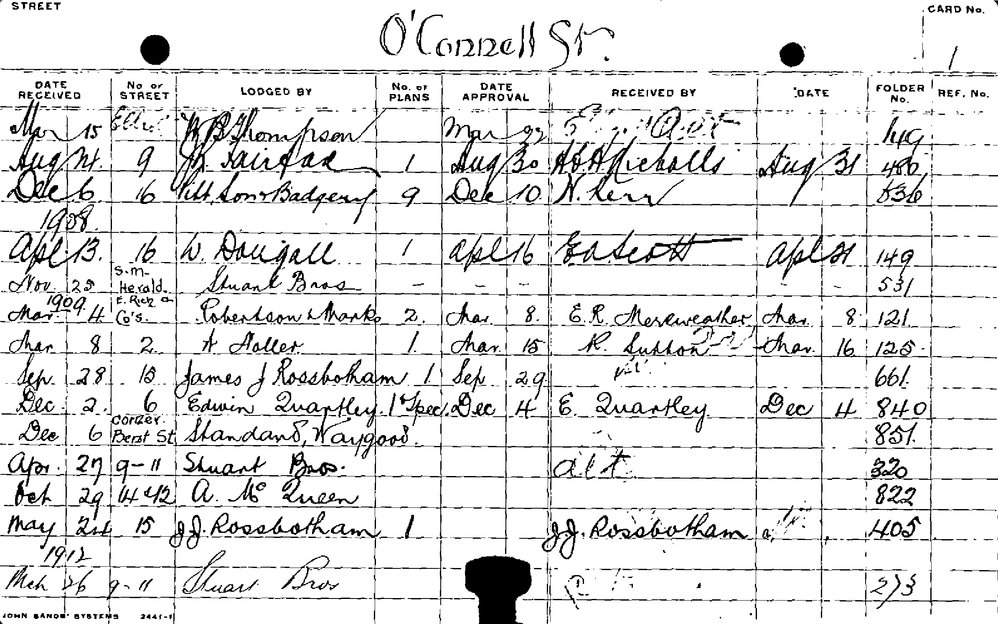 STREET
CARD No.
O'Connell St.
1
DATE RECEIVED No. OF STREET LODGED BY No. OF PLANS DATE APPROVAL RECEIVED BY DATE FOLDER No. REF. No.
Mar 15 Thompson Mar 22 149
Aug 24 9 Fairfax 1 Aug 30 Nicholls Aug 31 480
Dec 6 16 Pitt, Son & Badgery 9 Dec 10 N. Kerr 536
1908
Apl 13 16 W. Dougall 1 Apl 16 Ed Scott Apl 21 149
Nov 25 S.M. Herald Stuart Bros - - - - - 531
1909
Mar 4 E. Rich & Co's. Robertson & Marks 2 Mar 8 E.R. Merewether Mar 8 121
Mar 8 2 1 Mar 15 R. Sutton Mar 16 125
Sep 28 15 James J Rossbotham 1 Sep 29 661
Dec 2 6 Edwin Quartley 1 & Spec. Dec 4 E. Quartley Dec 4 840
Dec 6 corner Bent St Standard, Waygood. 851
Apr. 27 9-11 Stuart Bros. alt 320
Oct 29 14 & 12 A. McQueen 822
May 24 15 J.J. Rossbotham 1 J.J. Rossbotham 405
1912
Mch 26 9-11 Stuart Bros 273
JOHN SANDS' SYSTEMS 2441-1